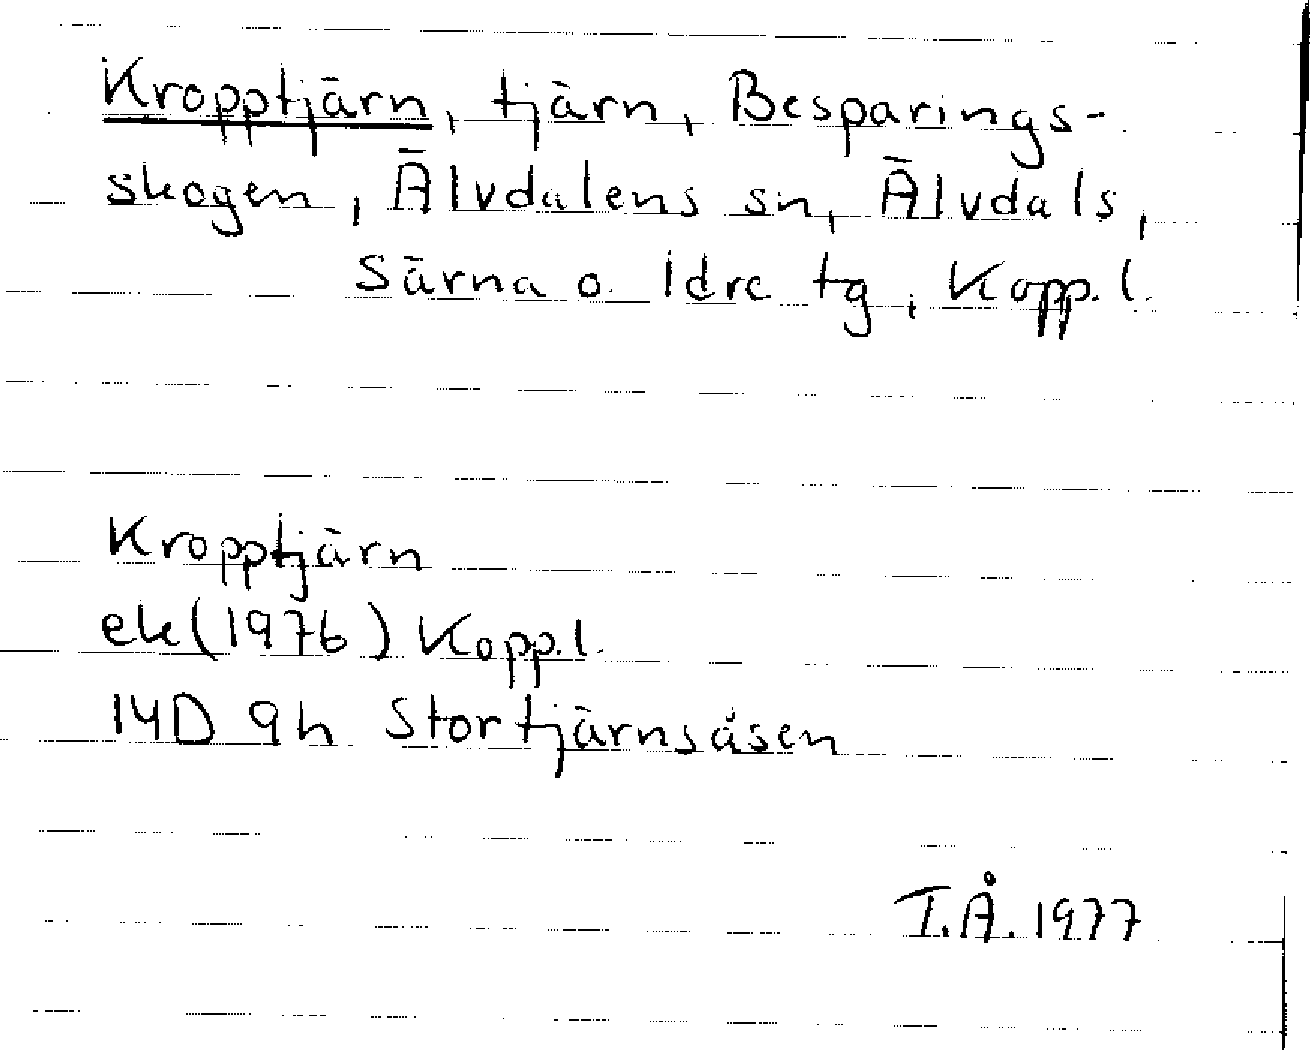 Kropptjärn, tjärn, Besparings-
skogen, Älvdalens sn, Älvdals,
Särna o. Idre tg, Kopp. l.
Kropptjärn
ek (1976) Kopp.l.
14D 9h Stortjärnsåsen
T.Å. 1977